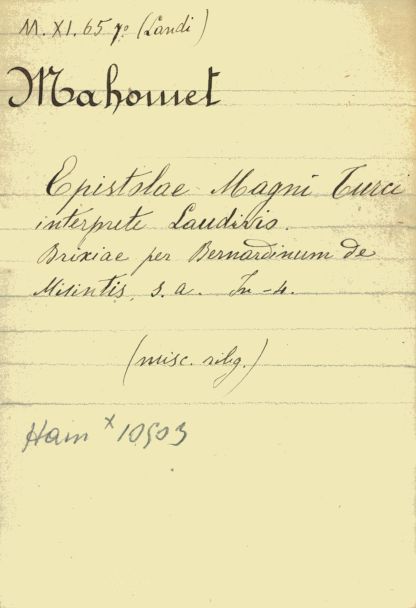 M. XI. 65 7º (Landi)
Mahomet
Epistolae Magni Turci
interprete Laudivio.
Brixiae per Bernardinum de
Misintis, s. a. In-4.
(misc. rileg.)
Hain x 10503